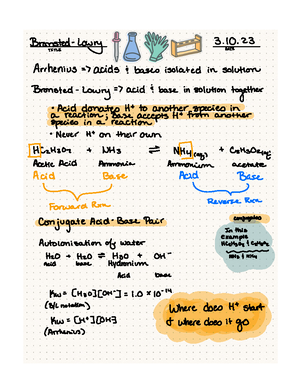 Bronsted-Lowry
TITLE
3.10.23
DATE
Arrhenius => acids & bases isolated in solution
Bronsted-Lowry => acid & base in solution together
• Acid donates H⁺ to another species in
a reaction; Base accepts H⁺ from another
species in a reaction
• Never H⁺ on their own
HC₂H₃O₂ + NH₃ ⇌ NH₄ (aq) + C₂H₃O₂ (aq)
Acetic Acid Ammonia Ammonium acetate
Acid Base Acid Base
Forward Rxn Reverse Rxn
Conjugate Acid-Base Pair
conjugates
In this
example
HC₂H₃O₂ & C₂H₃O₂
NH₃ & NH₄
Autoionisation of water
H₂O + H₂O ⇌ H₃O + OH⁻
acid base Hydronium
Acid base
Kw = [H₃O][OH⁻] = 1.0 × 10⁻¹⁴
(B/L notation)
Kw = [H⁺][OH]
(Arrhenius)
Where does H⁺ start
& where does it go